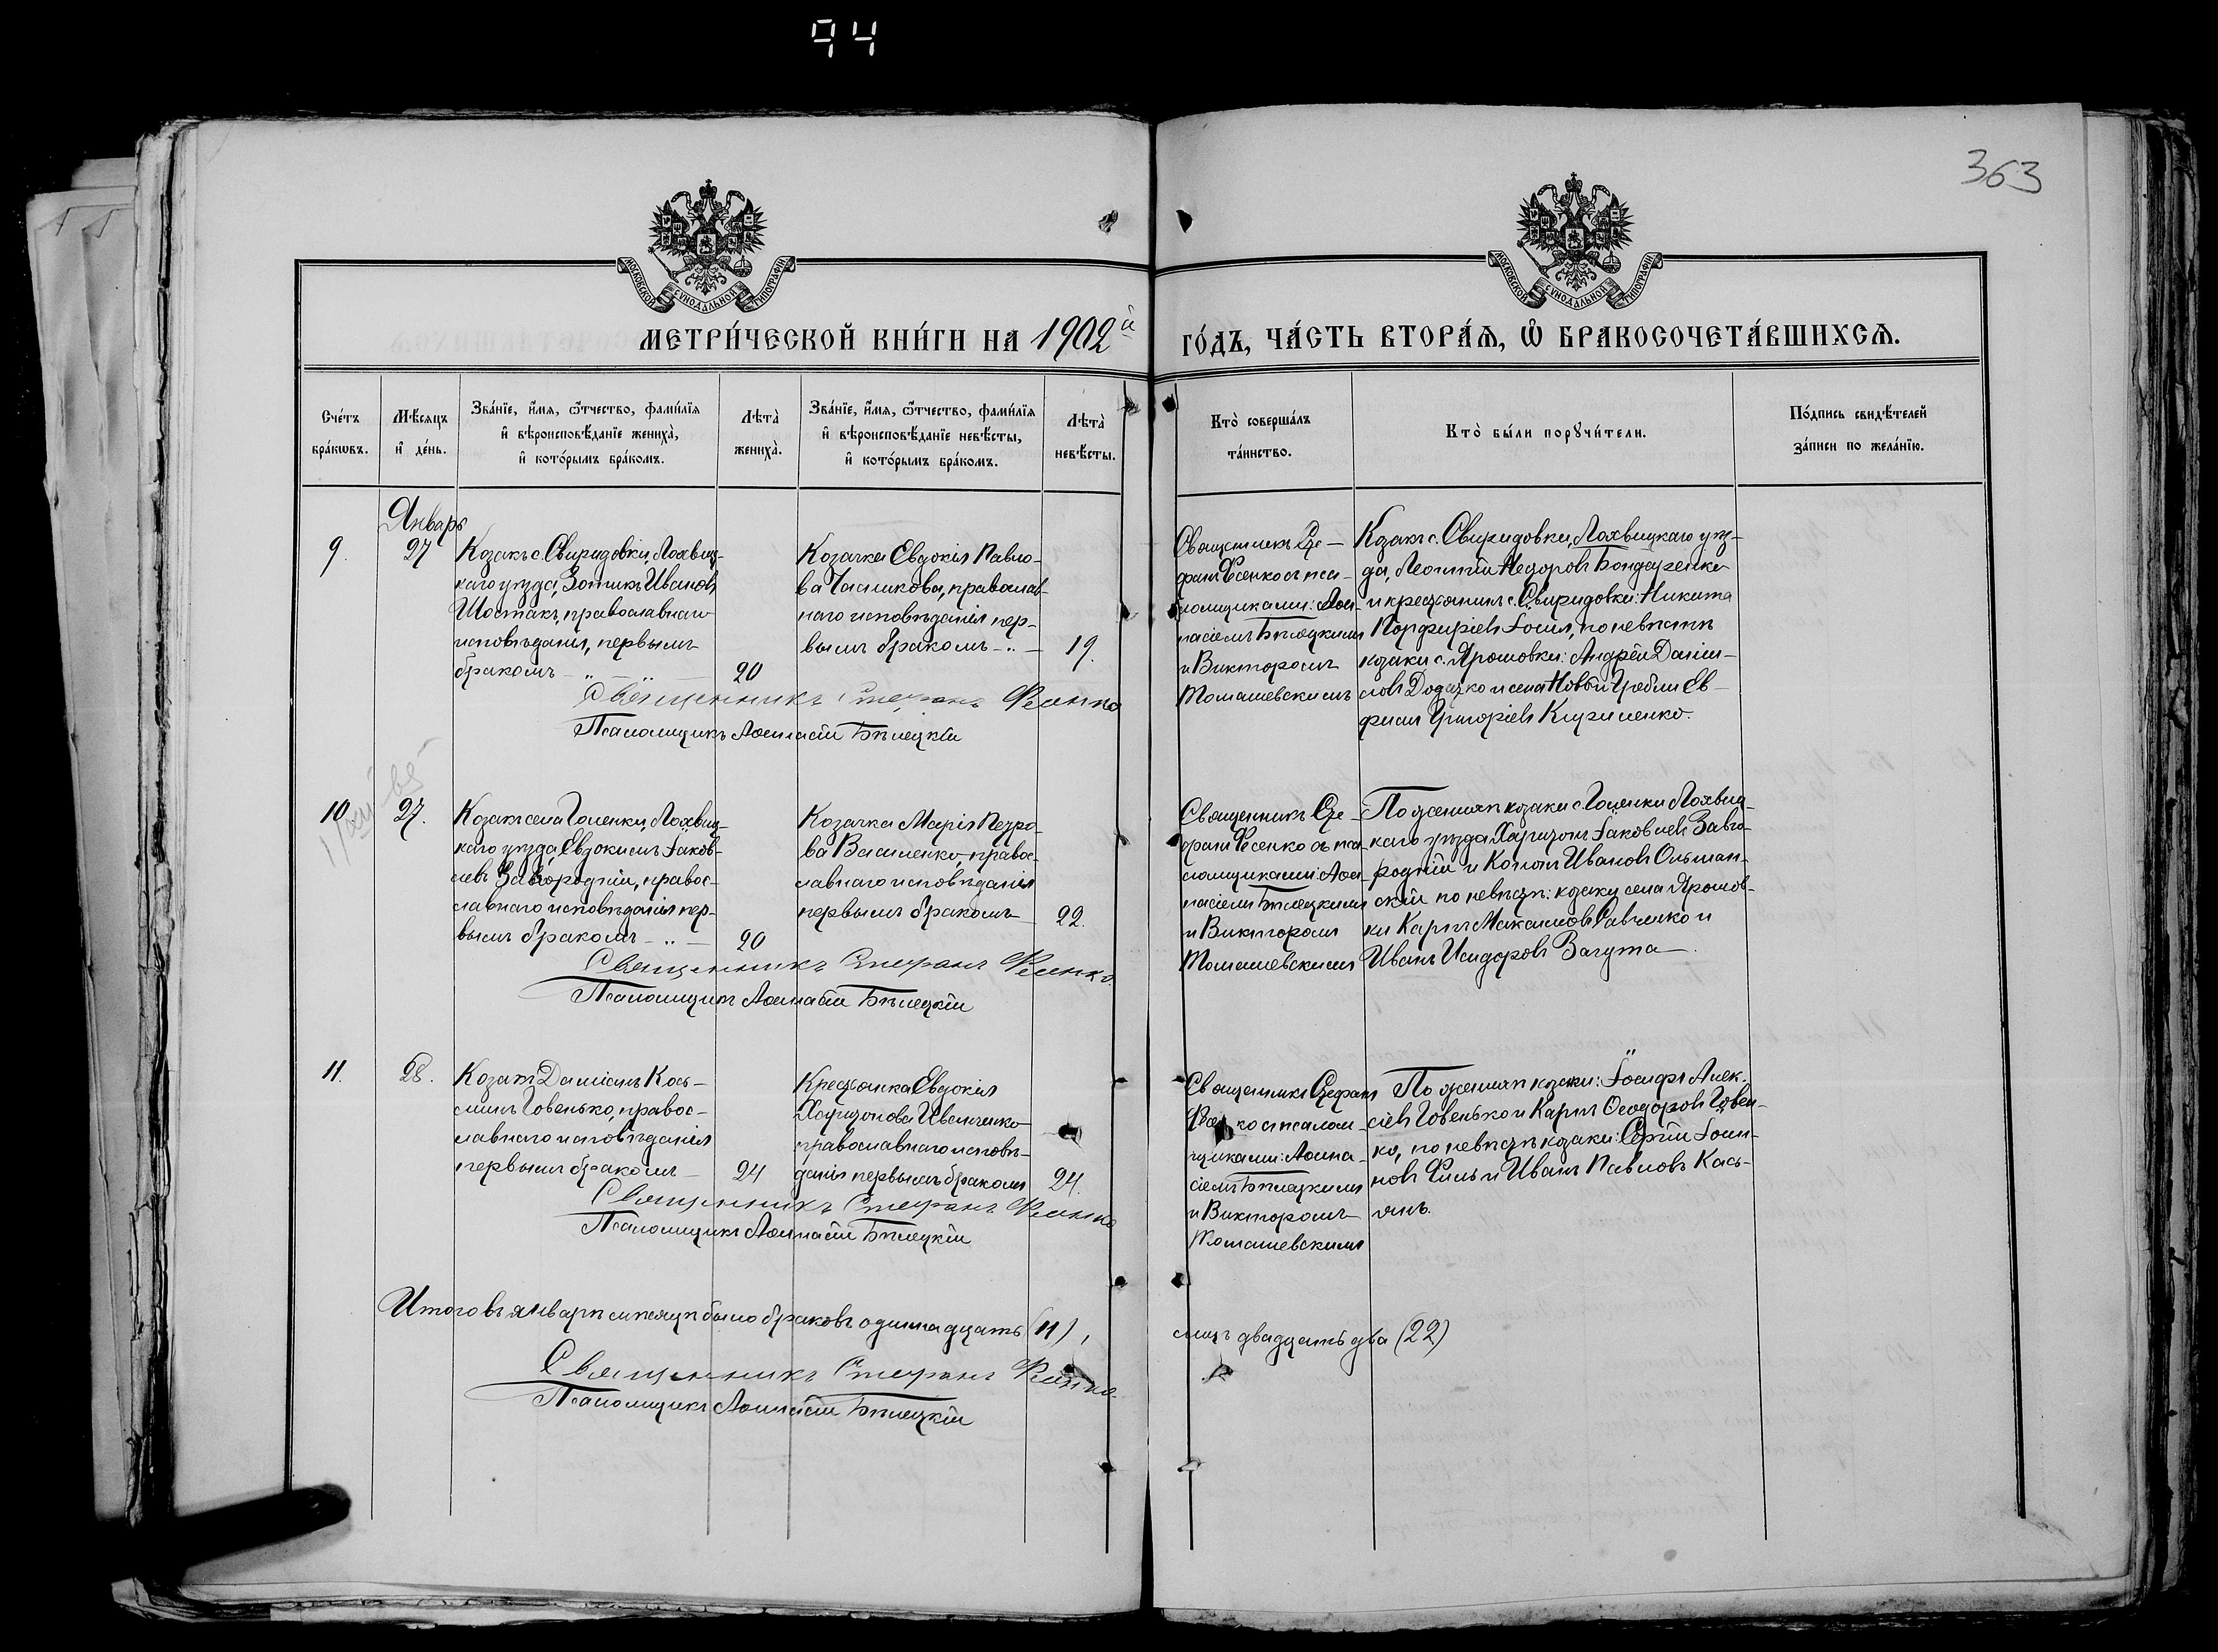 94
363
МОСКОВСКОЙ СУНОДАЛЬНОЙ ТИПОГРАФІИ
МОСКОВСКОЙ СУНОДАЛЬНОЙ ТИПОГРАФІИ
МЕТРИ́ЧЕСКОЙ КНИ́ГИ НА 1902й
ГО́ДЪ, ЧА́СТЬ ВТОРА́Я, Ѿ БРАКОСОЧЕТА́ВШИХСѦ.
Сче́тъ
бра́кѡвъ.
Мѣ́сяцъ
и҆ де́нь.
Зва́нїе, и҆́мя, ѻ҆́тчество, фами́лїя
и҆ вѣроисповѣ́данїе жениха̀,
и҆ кото́рымъ бра́комъ.
Лѣта̀
жениха̀.
Зва́нїе, и҆́мя, ѻ҆́тчество, фами́лїя
и҆ вѣроисповѣ́данїе невѣ́сты,
и҆ кото́рымъ бра́комъ.
Лѣта̀
невѣ́сты.
Кто̀ соверша́лъ
та́инство.
Кто̀ бы́ли порꙋчи́тели.
По́дпись свидѣ́телей
за́писи по жела́нїю.
Январь
9.
27
Козакъ с. Свиридовки, Лохвиц-
каго уѣзда, Зотикъ Ивановъ
Шостакъ, православнаго
исповѣданія, первымъ
бракомъ
20
Козачка Евдокія Павло-
ва православ-
наго исповѣданія пер-
вымъ бракомъ
19.
Священникъ Сте-
фанъ Фесенко съ пса-
ломщиками: Аѳа-
насіемъ Бѣлецкимъ
и Викторомъ
Томашевскимъ
Козакъ с. Свиридовки, Лохвицкаго уѣз-
да, Леонтій Бондаренко
и крестьянинъ с. Свиридовки: Никита
Порфиріевъ по невѣстѣ
козаки с. Ярошовки: Андрей Дани-
ловъ и села Новой Гребли Ев-
фимъ Григоріевъ Кириленко.
Священникъ Стефанъ Фесенко
Псаломщикъ Аѳанасій Бѣлецкій
10
27.
Козакъ села Голенки, Лохвиц-
каго уѣзда, Евдокимъ Іаков-
левъ Завгородній, правос-
лавнаго исповѣданія пер-
вымъ бракомъ
20
Козачка Марія Петро-
ва Василенко, правос-
лавнаго исповѣданія
первымъ бракомъ
22.
Священникъ Сте-
фанъ Фесенко съ пса-
ломщиками: Аѳа-
насіемъ Бѣлецкимъ
и Викторомъ
Томашевскимъ
По женихѣ козаки с. Голенки Лохвиц-
каго уѣзда Харитонъ Іаковлевъ Завго-
родній и Кононъ Ивановъ Ольшан-
скій по невѣстѣ: козаки села Ярошов-
ки Карпъ Максимовъ Савченко и
Иванъ Исидоровъ
Священникъ Стефанъ Фесенко
Псаломщикъ Аѳанасій Бѣлецкій
11.
28.
Козакъ Даміанъ Кось-
минъ Говенько, правос-
лавнаго исповѣданія
первымъ бракомъ
24
Крестьянка Евдокія
Харитонова Иванченко
православнаго исповѣ-
данія первымъ бракомъ
24.
Священникъ Стефанъ
съ псалом-
щиками: Аѳана-
сіемъ Бѣлецкимъ
и Викторомъ
Томашевскимъ
По женихѣ козаки: Іосифъ Алек-
сіевъ Говенько и Карпъ Ѳеодоровъ Говен-
ко, по невѣстѣ козаки: Сергій
и Иванъ Павловъ Кась-
янъ.
Священникъ Стефанъ Фесенко
Псаломщикъ Аѳанасій Бѣлецкій
Итого въ январѣ мѣсяцѣ было браковъ одиннадцать (11),
лицъ двадцать два (22)
Священникъ Стефанъ Фесенко
Псаломщикъ Аѳанасій Бѣлецкій